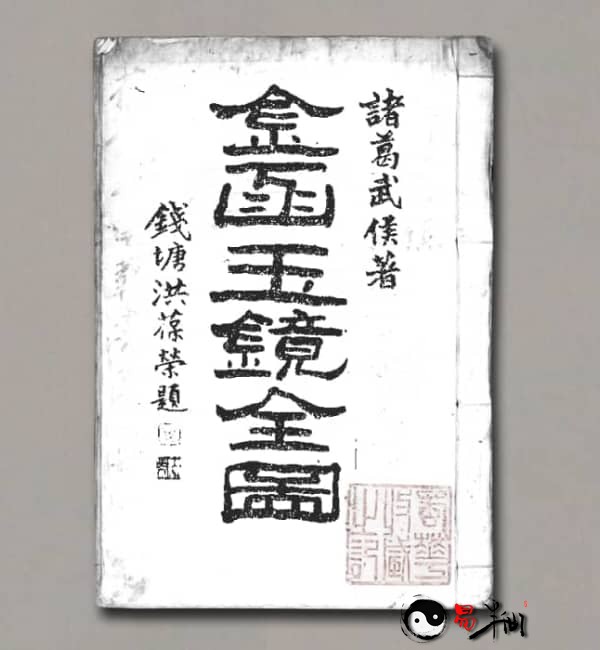 諸葛武侯著
金函玉鏡全圖
錢塘洪葆榮題